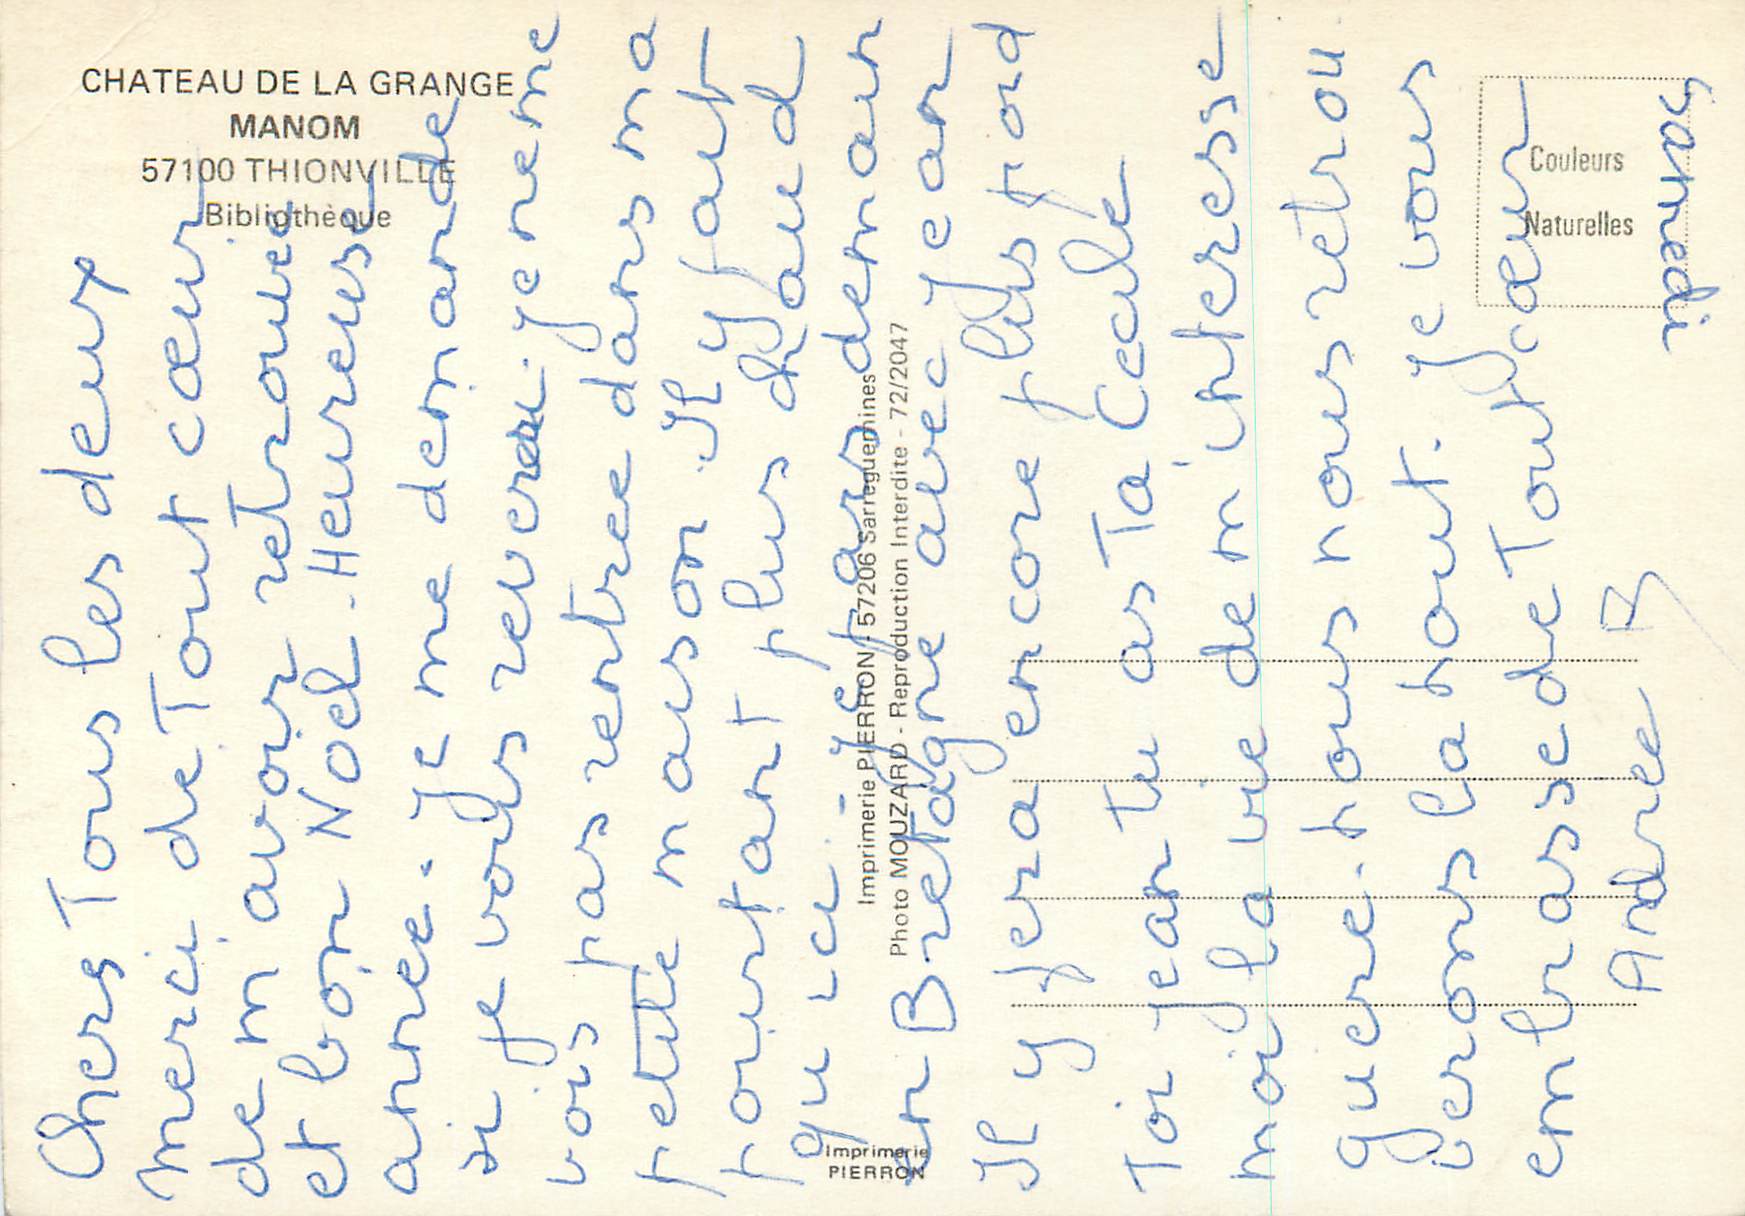 CHATEAU DE LA GRANGE
MANOM
57100 THIONVILLE
Bibliothèque
Couleurs
Naturelles
Imprimerie PIERRON - 57206 Sarreguemines
Photo MOUZARD - Reproduction Interdite - 72/2047
Imprimerie
PIERRON
Chers Tous les deux
merci de Tout cœur
de m avoir retrouvée
et bon Noel. Heureuse
annee. Je me demande
si je vous reverai. Je ne me
vois pas rentree dans ma
petite maison. Il y faut
pourtant plus chaud
qu ici. Je pars demain
en Bretagne avec Jean
Il y fera encore plus froid
Toi Jean tu as Ta Cecile
moi la vie de m interesse
guere. nous nous retrou
verons la haut. Je vous
embrasse de Tout cœur
Andree B
samedi